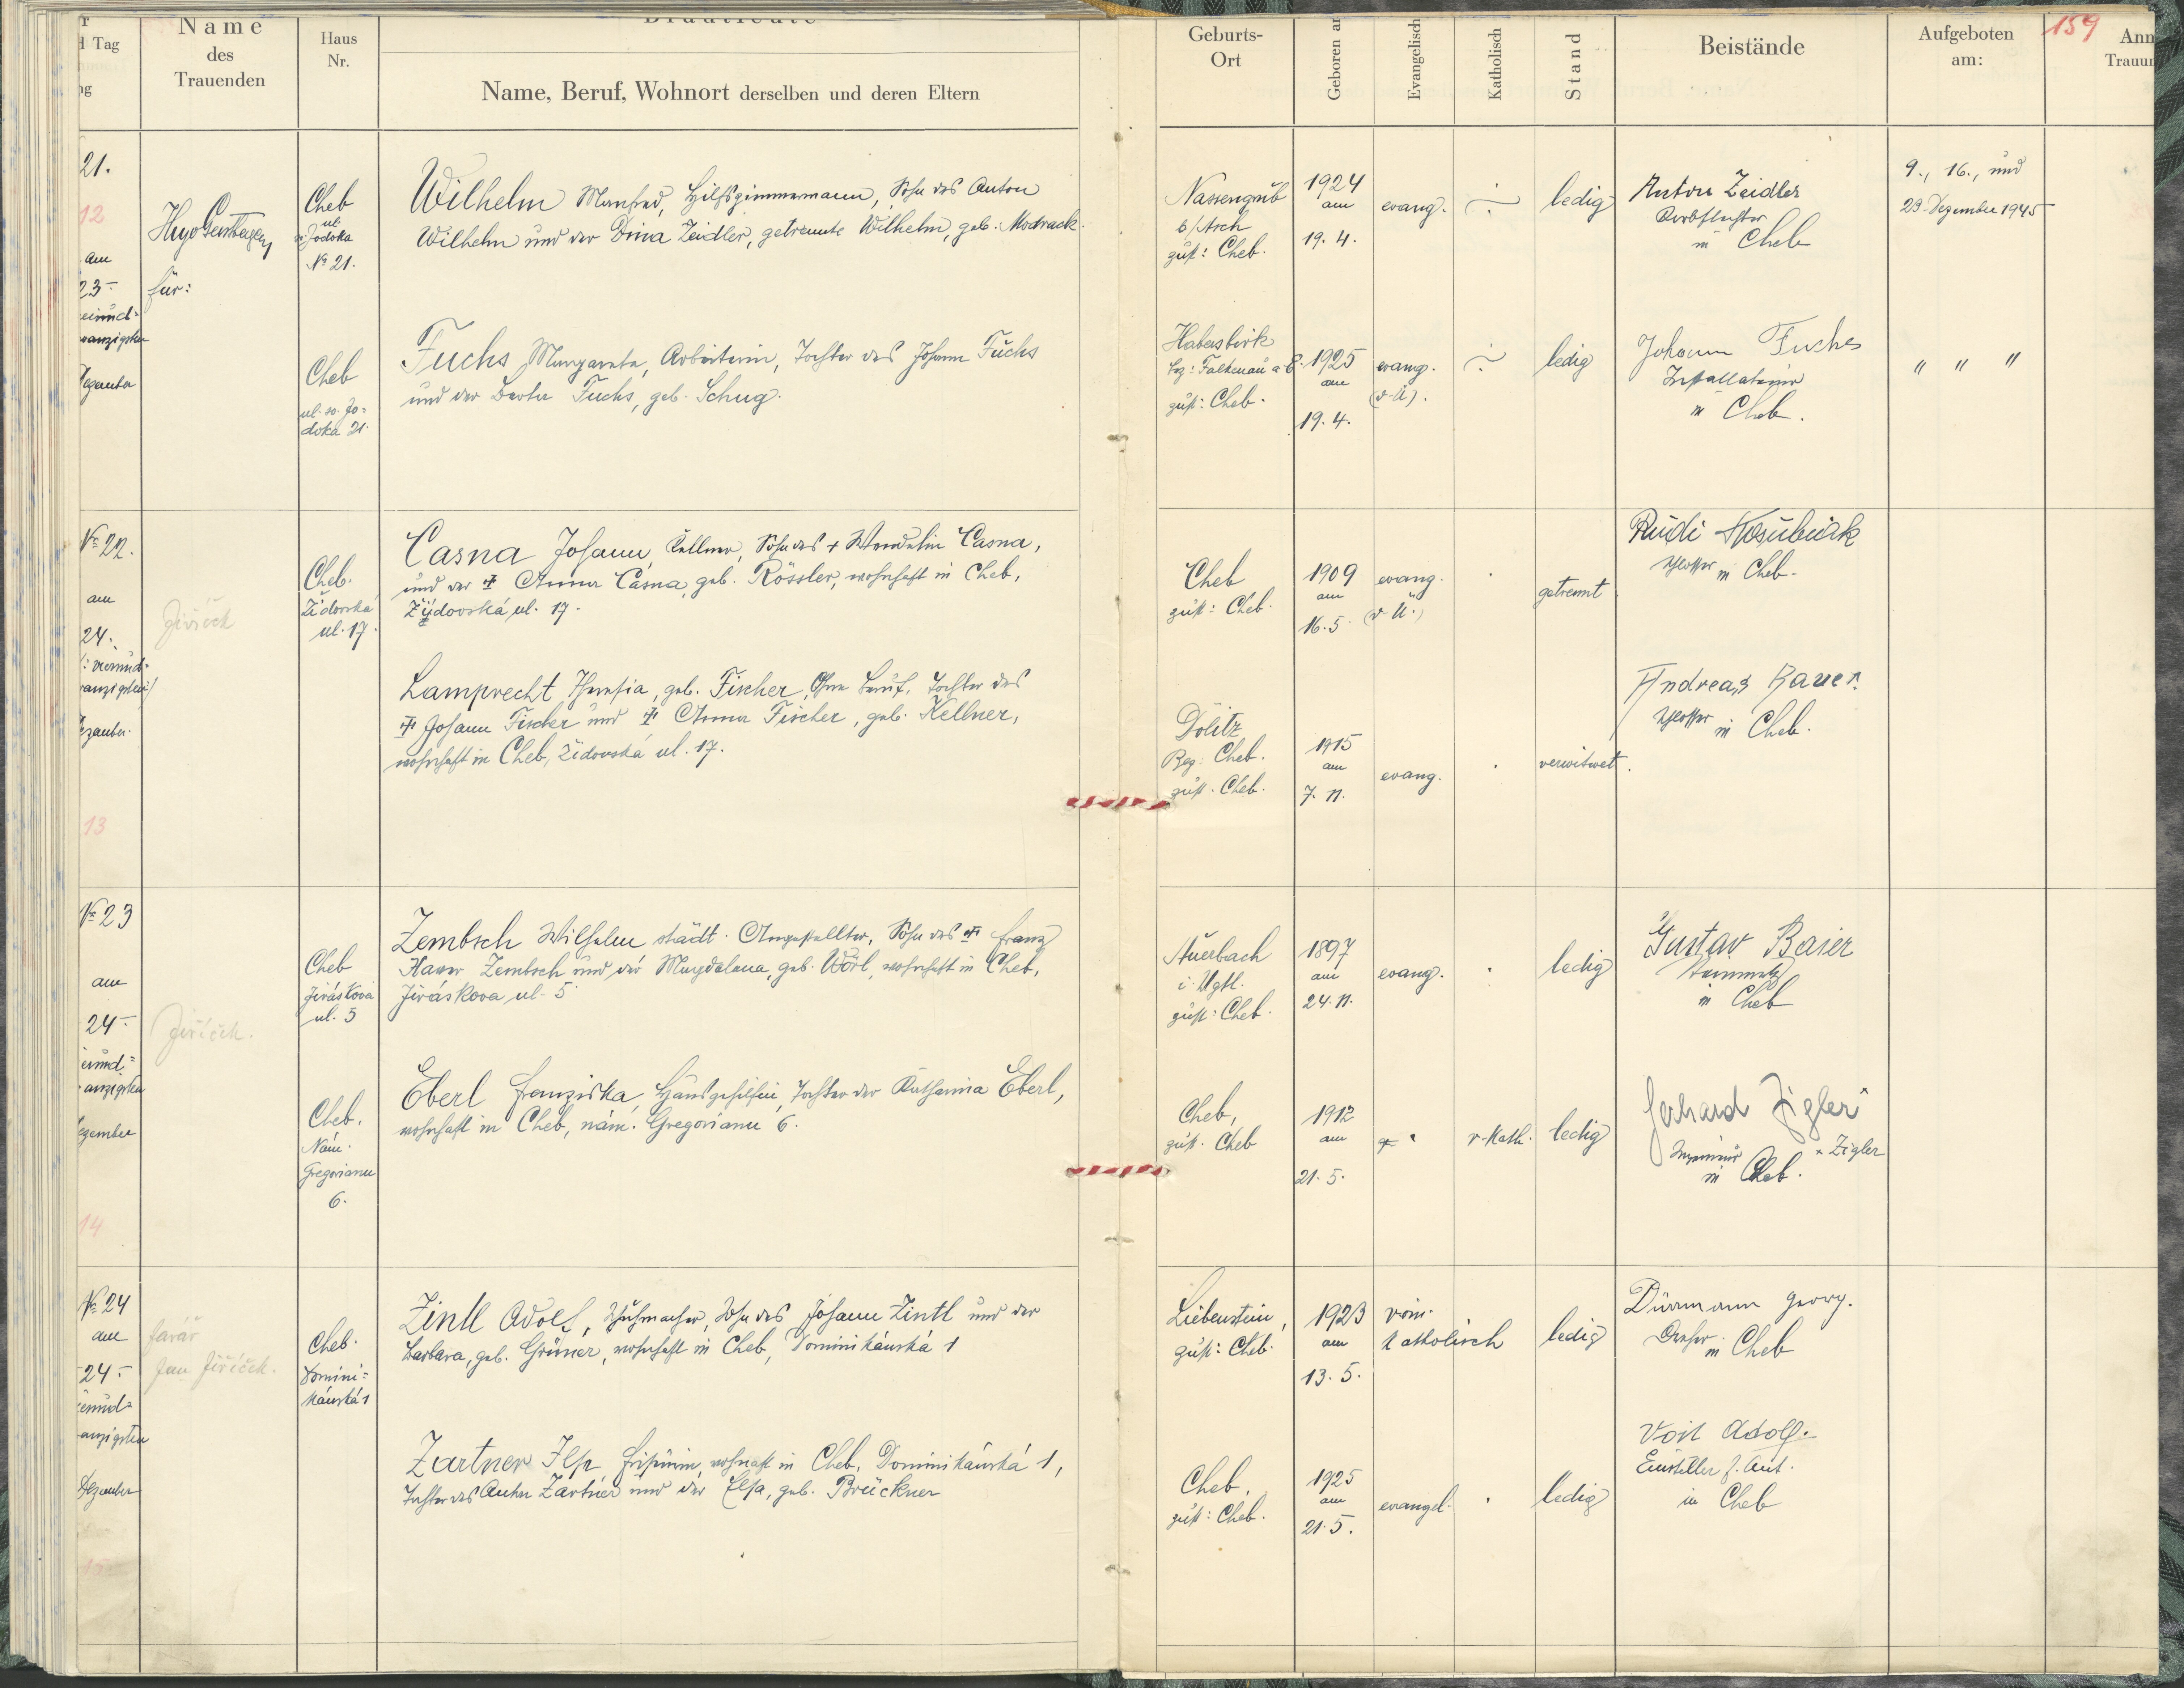 Tag
Name
des
Trauenden
Haus
Nr.
Name, Beruf, Wohnort derselben und deren Eltern
Geburts-
Ort
Geboren
Evangelisch
Katholisch
Stand
Beistände
Aufgeboten
am:
159
21.
12
am
23.
für:
Cheb
ul.
Jodoka
№ 21.
Wilhelm Manfred, Hilfszimmermann, Sohn des Anton
Wilhelm und der Dina Zeidler, getrennte Wilhelm, geb. Modrack.
Nassengrub
b/Asch
zust: Cheb.
1924
am
19. 4.
evang.
ledig
Anton Zeidler
Korbflechter
in Cheb
9., 16., und
23. Dezember 1945
Cheb
ul. sv. Jo-
doka 21.
Fuchs Margareta, Arbeiterin, Tochter des Johann Fuchs
und der Berta Fuchs, geb. Schug.
Haberbirk
Bez: Falkenau a. E.
zust: Cheb.
1925
am
19. 4.
evang.
ledig
Johann Fuchs
Installateur
in Cheb.
" " "
№ 22.
am
24.
13
Jiříček
Cheb.
Židovská
ul. 17.
Casna Johann, Kellner, Sohn des + Wendelin Casna,
und der + Anna Casna, geb. Rössler, wohnhaft in Cheb,
Židovská ul. 17.
Cheb
zust: Cheb.
1909
am
16. 5.
evang.
getrennt
Rudi
Schlosser in Cheb.
Lamprecht Theresia, geb. Fischer, ohne Beruf, Tochter des
+ Johann Fischer und + Anna Fischer, geb. Kellner,
wohnhaft in Cheb, Židovská ul. 17.
Dölitz
Bez. Cheb.
zust. Cheb.
1915
am
7. 11.
evang.
verwitwet.
Andreas Bauer.
Schlosser in Cheb.
№ 23
am
24.
14
Jiříček.
Cheb
Jiráskova
ul. 5
Zembsch Wilhelm städt. Angestellter, Sohn des + Franz
Xaver Zembsch und der Magdalena, geb. Wörl, wohnhaft in Cheb,
Jiráskova ul. 5
Auerbach
i. Vgtl.
zust: Cheb.
1897
am
24. 11.
evang.
ledig
Gustav Baier
in Cheb
Cheb.
Nám.
Gregorianu
6.
Eberl Franziska, Hausgehilfin, Tochter der Katharina Eberl,
wohnhaft in Cheb, nám. Gregorianu 6.
Cheb,
zust. Cheb
1912
am
21. 5.
r. Kath.
ledig
Gerhard Zigler
x Zigler
Ingenieur
in Cheb.
№ 24
am
24.
Dezember
farář
Jan Jiříček.
Cheb.
Domini-
kánská 1
Zintl Adolf, Schuhmacher, Sohn des Johann Zintl und der
Barbara, geb. Grüner, wohnhaft in Cheb, Dominikánská 1
Liebenstein,
zust: Cheb.
1923
am
13. 5.
röm.
katholisch
ledig
Dürrmann Georg.
Dreher in Cheb
Zartner Ilse Friseurin, wohnhaft in Cheb, Dominikánská 1,
Tochter des Anton Zartner und der Elsa, geb. Brückner
Cheb,
zust: Cheb.
1925
am
21. 5.
evangel.
ledig
Voit Adolf.
in Cheb